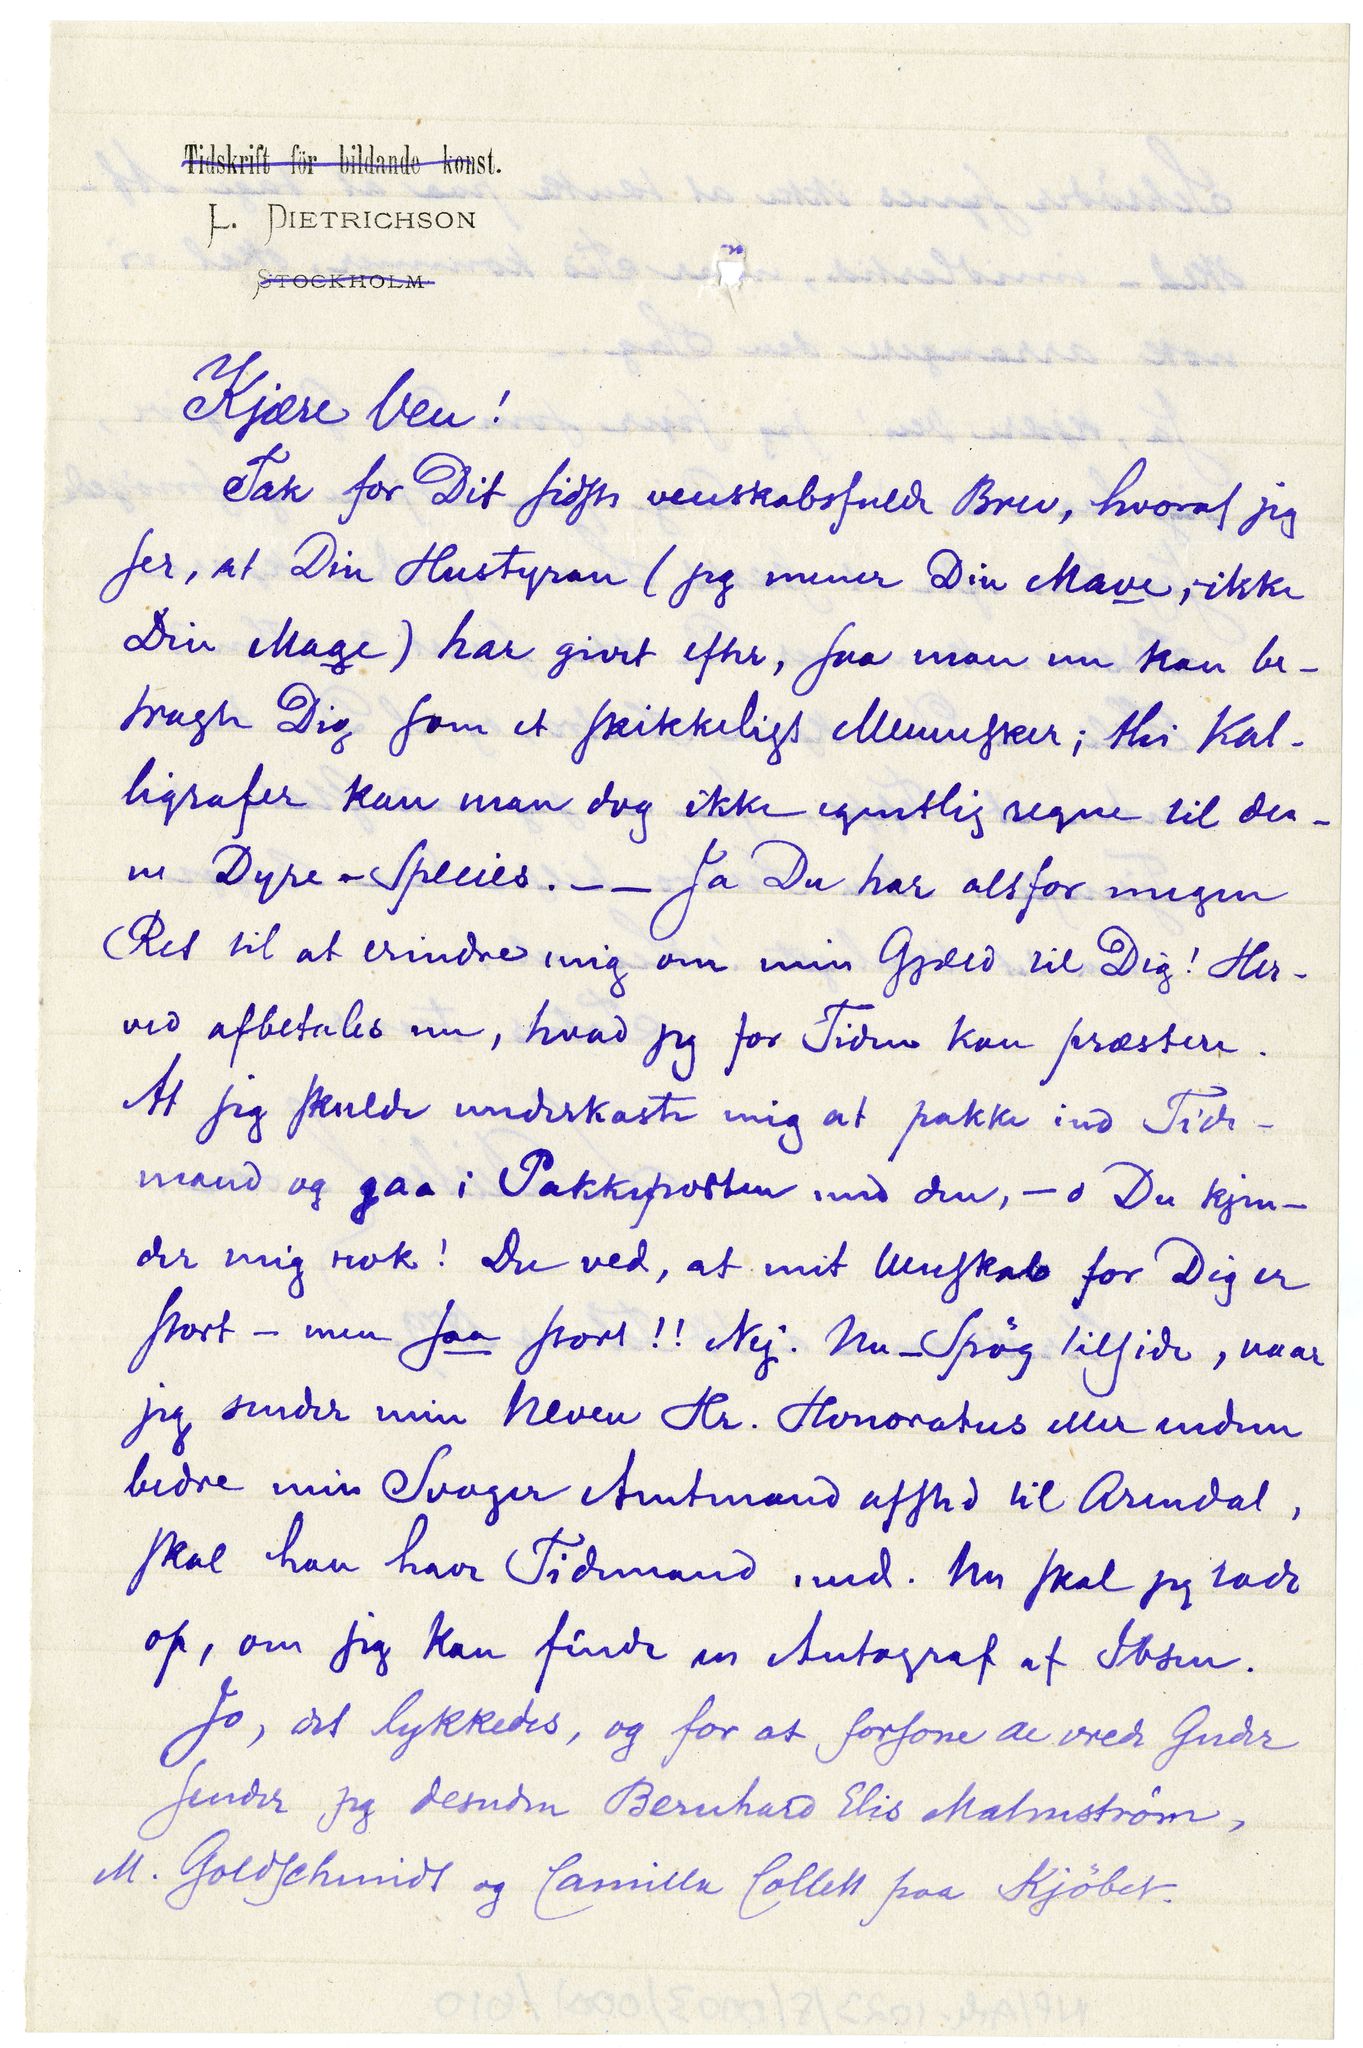 Tidskrift för bildande konst.
L. DIETRICHSON
STOCKHOLM
Kjære Ven!
Tak for Dit sidste venskabsfulde Brev, hvoraf jeg
ser, at Din Hustyran (jeg mener Din Mave, ikke
Din Mage) har givet efter, saa man nu kan be-
tragte Dig som et skikkeligt Menneske; thi Kal-
ligrafer kan man dog ikke egentlig regne til den-
ne Dyre-Species. – – Ja Du har altfor megen
Ret til at erindre mig om min Gjæld til Dig! Her-
ved afbetales nu, hvad jeg for Tiden kan præstere.
At jeg skulde underkaste mig at pakke ind Tide-
mand og gaa i Pakkeposten med den, – o Du kjen-
der mig nok! Du ved, at mit Venskab for Dig er
stort – men saa stort!! Nej. Nu – Spög tilside, naar
jeg sender min Neveu Hr. Honoratus eller endnu
bedre min Svoger Amtmand afsted til Arendal,
skal han have Tidemand med. Nu skal jeg lede
op, om jeg kan finde en Autograf af Ibsen.
Jo, det lykkedes, og for at forsone de vrede Guder
sender jeg desuden Bernhard Elis Malmström,
M. Goldschmidt og Camilla Collett paa Kjöbet.